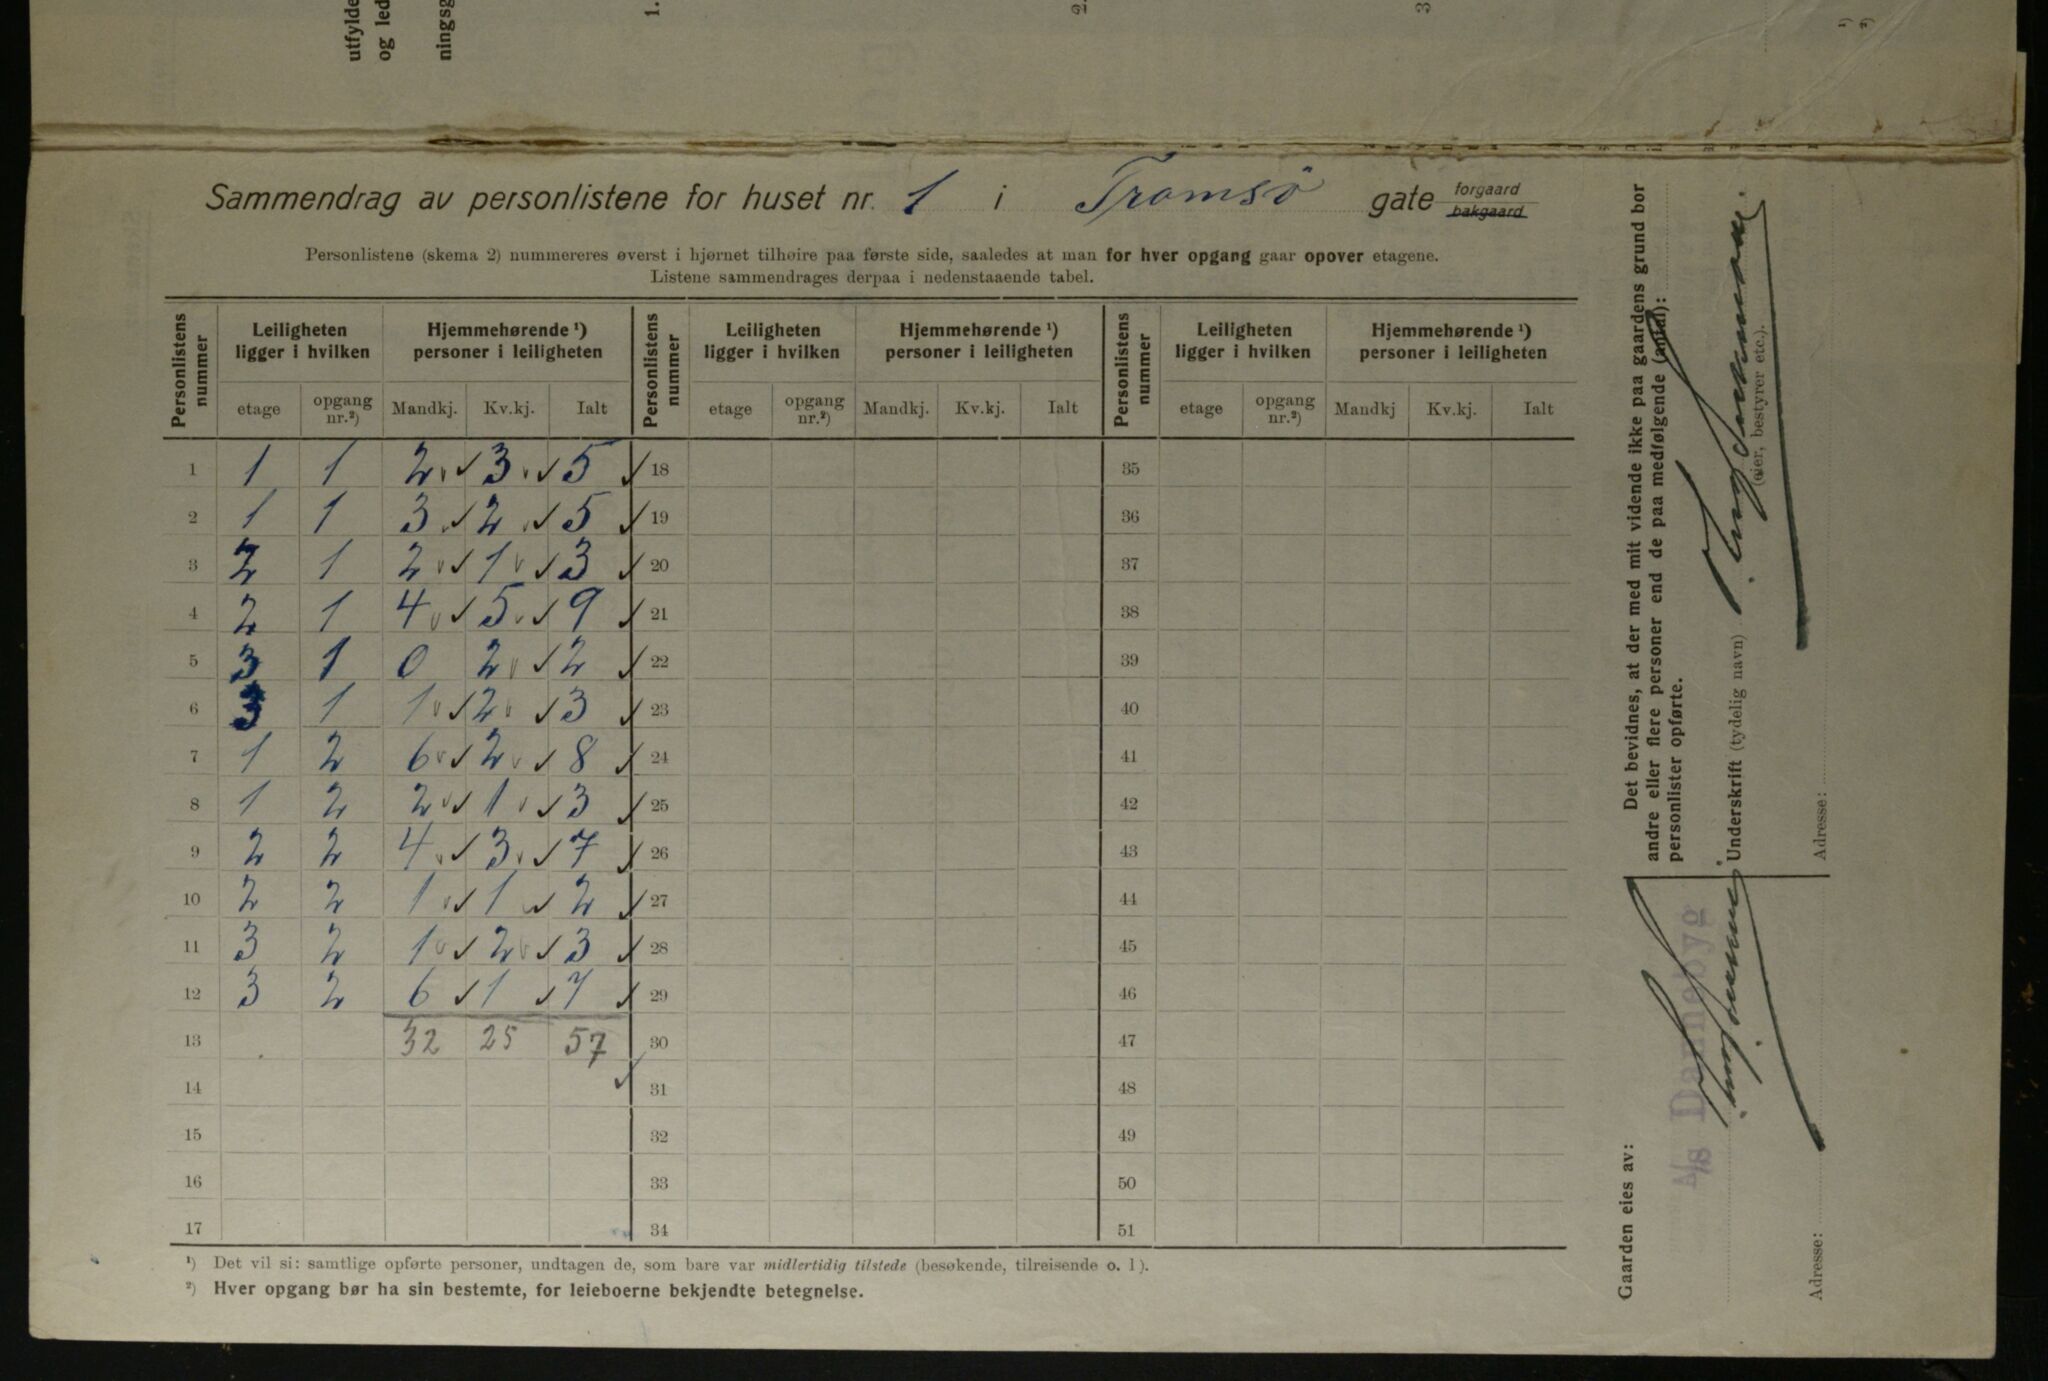 utfylde
og led
ningsg
1.
2.
3
¹)
²)
Sammendrag av personlistene for huset nr. 1 i Tromsö gate forgaard
bakgaard
Personlistene (skema 2) nummereres øverst i hjørnet tilhøire paa første side, saaledes at man for hver opgang gaar opover etagene.
Listene sammendrages derpaa i nedenstaaende tabel.
Personlistens nummer | Leiligheten ligger i hvilken | Hjemmehørende ¹) personer i leiligheten | Personlistens nummer | Leiligheten ligger i hvilken | Hjemmehørende ¹) personer i leiligheten | Personlistens nummer | Leiligheten ligger i hvilken | Hjemmehørende ¹) personer i leiligheten
etage | opgang nr.²) | Mandkj. | Kv.kj. | Ialt | etage | opgang nr.²) | Mandkj. | Kv.kj. | Ialt | etage | opgang nr.²) | Mandkj | Kv.kj. | Ialt
1 | 1 | 1 | 2 | 3 | 5 | 18 | 35
2 | 1 | 1 | 3 | 2 | 5 | 19 | 36
3 | 2 | 1 | 2 | 1 | 3 | 20 | 37
4 | 2 | 1 | 4 | 5 | 9 | 21 | 38
5 | 3 | 1 | 0 | 2 | 2 | 22 | 39
6 | 3 | 1 | 1 | 2 | 3 | 23 | 40
7 | 1 | 2 | 6 | 2 | 8 | 24 | 41
8 | 1 | 2 | 2 | 1 | 3 | 25 | 42
9 | 2 | 2 | 4 | 3 | 7 | 26 | 43
10 | 2 | 2 | 1 | 1 | 2 | 27 | 44
11 | 3 | 2 | 1 | 2 | 3 | 28 | 45
12 | 3 | 2 | 6 | 1 | 7 | 29 | 46
13 | 32 | 25 | 57 | 30 | 47
14 | 31 | 48
15 | 32 | 49
16 | 33 | 50
17 | 34 | 51
¹) Det vil si: samtlige opførte personer, undtagen de, som bare var midlertidig tilstede (besøkende, tilreisende o. l).
²) Hver opgang bør ha sin bestemte, for leieboerne bekjendte betegnelse.
Det bevidnes, at der med mit vidende ikke paa gaardens grund bor
andre eller flere personer end de paa medfølgende (antal):
personlister opførte.
Underskrift (tydelig navn)
(eier, bestyrer etc.).
Adresse:
Gaarden eies av:
A/s Dannebyg
Adresse: